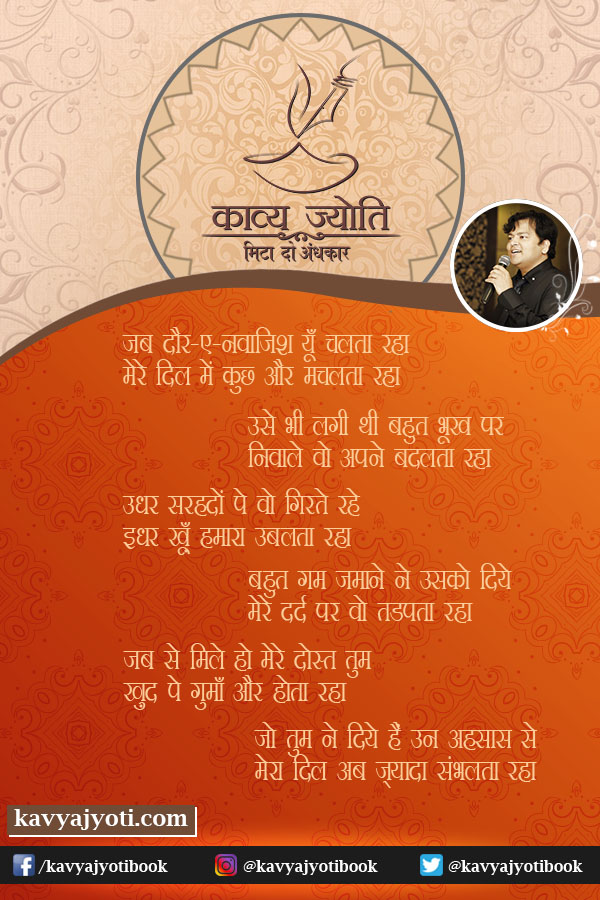 काव्य ज्योति
मिटा दो अंधकार
जब दौर-ए-नवाजिश यूँ चलता रहा
मेरे दिल में कुछ और मचलता रहा
उसे भी लगी थी बहुत भूख पर
निवाले वो अपने बदलता रहा
उधर सरहदों पे वो गिरते रहे
इधर खूँ हमारा उबलता रहा
बहुत गम जमाने ने उसको दिये
मेरे दर्द पर वो तडपता रहा
जब से मिले हो मेरे दोस्त तुम
खुद पे गुमाँ और होता रहा
जो तुम ने दिये हैं उन अहसास से
मेरा दिल अब ज़्यादा संभलता रहा
kavyajyoti.com
/kavyajyotibook @kavyajyotibook @kavyajyotibook